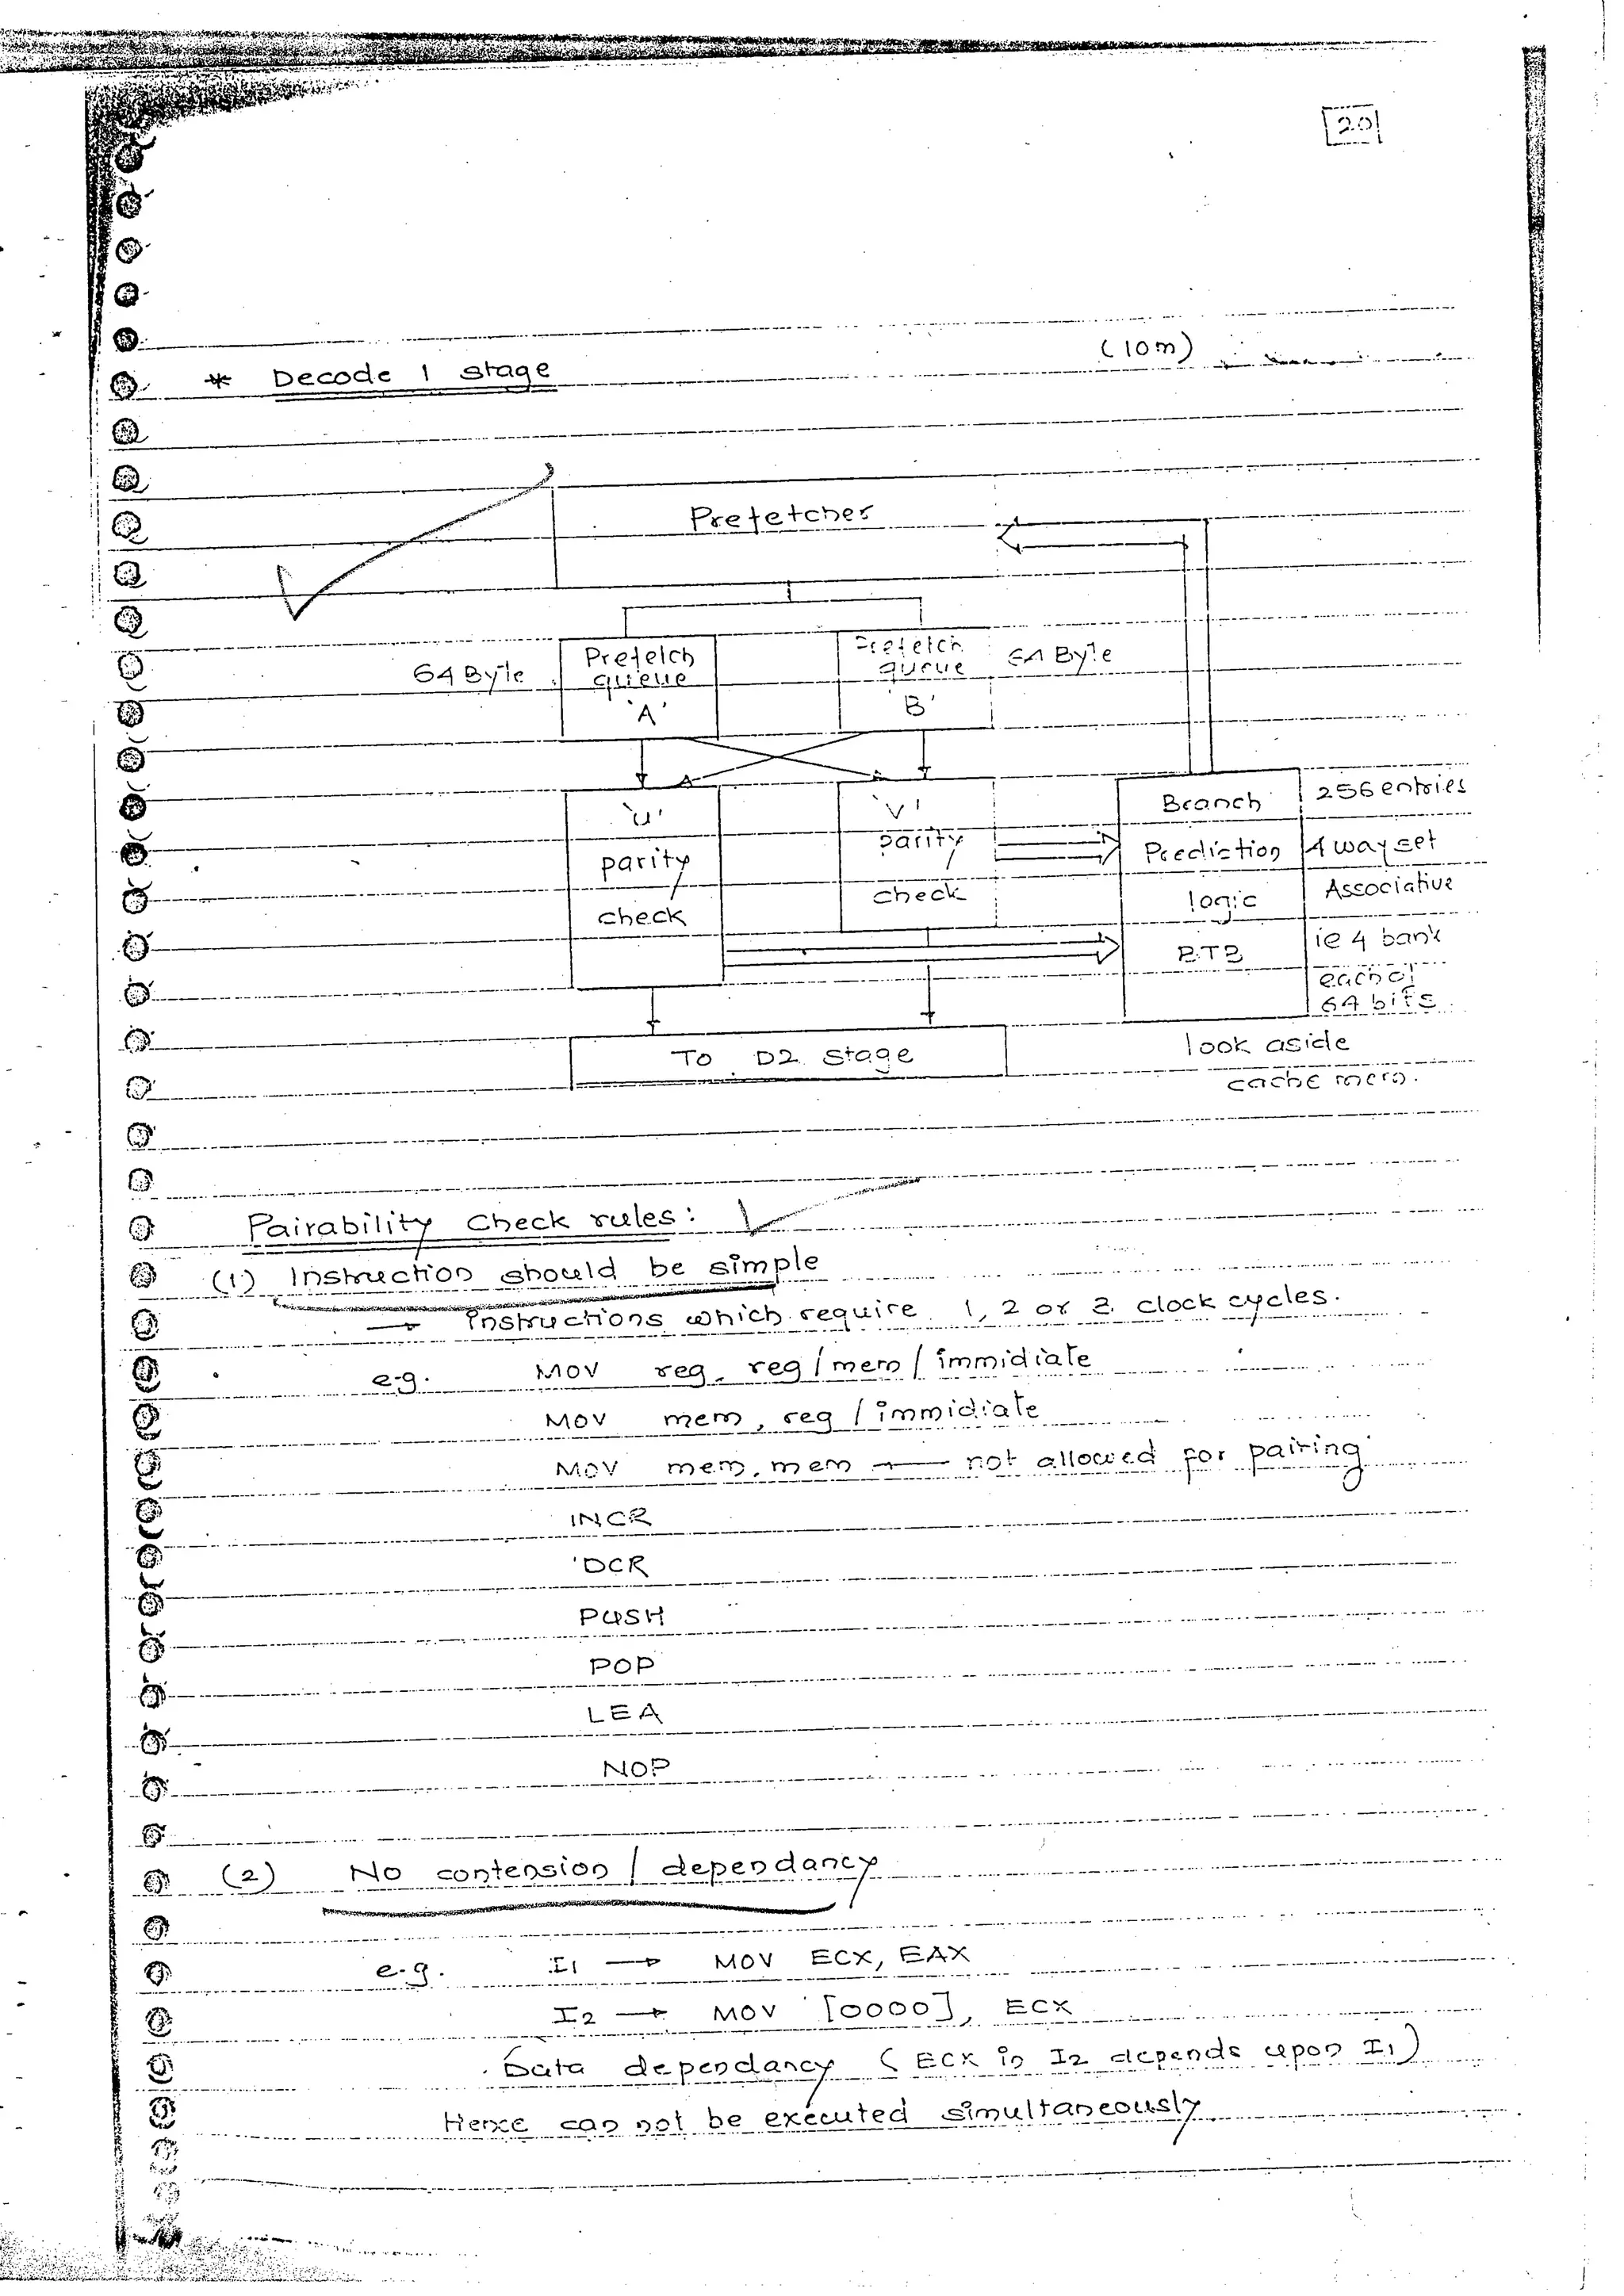 20
(10m)
* Decode 1 stage
Prefetcher
64 Byte
Prefetch queue 'A'
Prefetch queue 'B'
64 Byte
'U' parity check
'V' parity check
Branch Prediction logic BTB
256 entries
4 way set
Associative
ie 4 bank
each of
64 bits
To D2 stage
look aside
cache mem.
Pairability check rules:
(1) Instruction should be simple
→ Instructions which require 1, 2 or 3 clock cycles.
e.g. MOV reg, reg / mem / immidiate
MOV mem, reg / immidiate
MOV mem, mem — not allowed for pairing
INCR
DCR
PUSH
POP
LEA
NOP
(2) No contension / dependancy
e.g. I1 → MOV ECX, EAX
I2 → MOV [0000], ECX
Data dependancy (ECX in I2 depends upon I1)
Hence can not be executed simultaneously